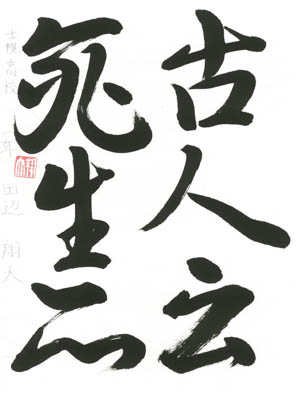 古人云
死生亦
士幌高校 一年 田辺 翔人